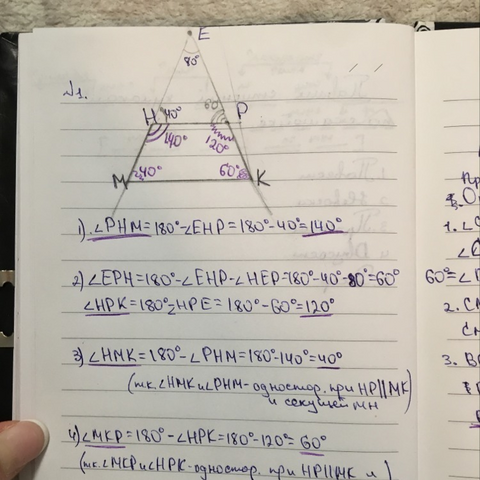 E
80°
√1.
H 40° 60 P
140° 120°
M 40° 60° K
1). ∠PHM=180°-∠EHP=180°-40°=140°
2) ∠EPH=180°-∠EHP-∠HEP=180°-40°-80°=60°
∠HPK=180°-HPE=180°-60°=120°
3) ∠HMK=180°-∠PHM=180°-140°=40°
(т.к. ∠HMK и ∠PHM-одностор. при HP||MK)
и секущей MH
4) ∠MKP=180°-∠HPK=180°-120°=60°
(т.к. ∠MKP и ∠HPK-одностор. при HP||MK и
1. ∠
∠
60°=∠
2.
3.